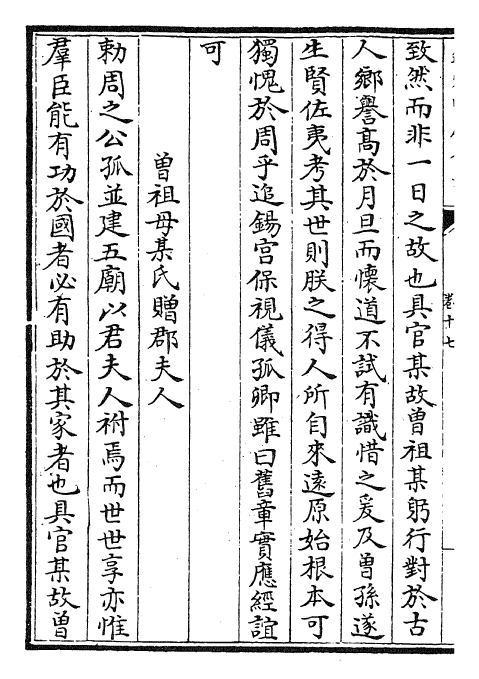 卷十七
致然而非一日之故也具官某故曽祖某躬行對於古
人鄉譽髙於月旦而懷道不試有識惜之爰及曽孫遂
生賢佐夷考其世則朕之得人所自來遠原始根本可
獨愧於周乎追錫宫保視儀孤卿雖曰舊章實應經誼
可
曽祖母某氏贈郡夫人
勑周之公孤並建五廟以君夫人祔焉而世世享亦惟
羣臣能有功於國者必有助於其家者也具官某故曽